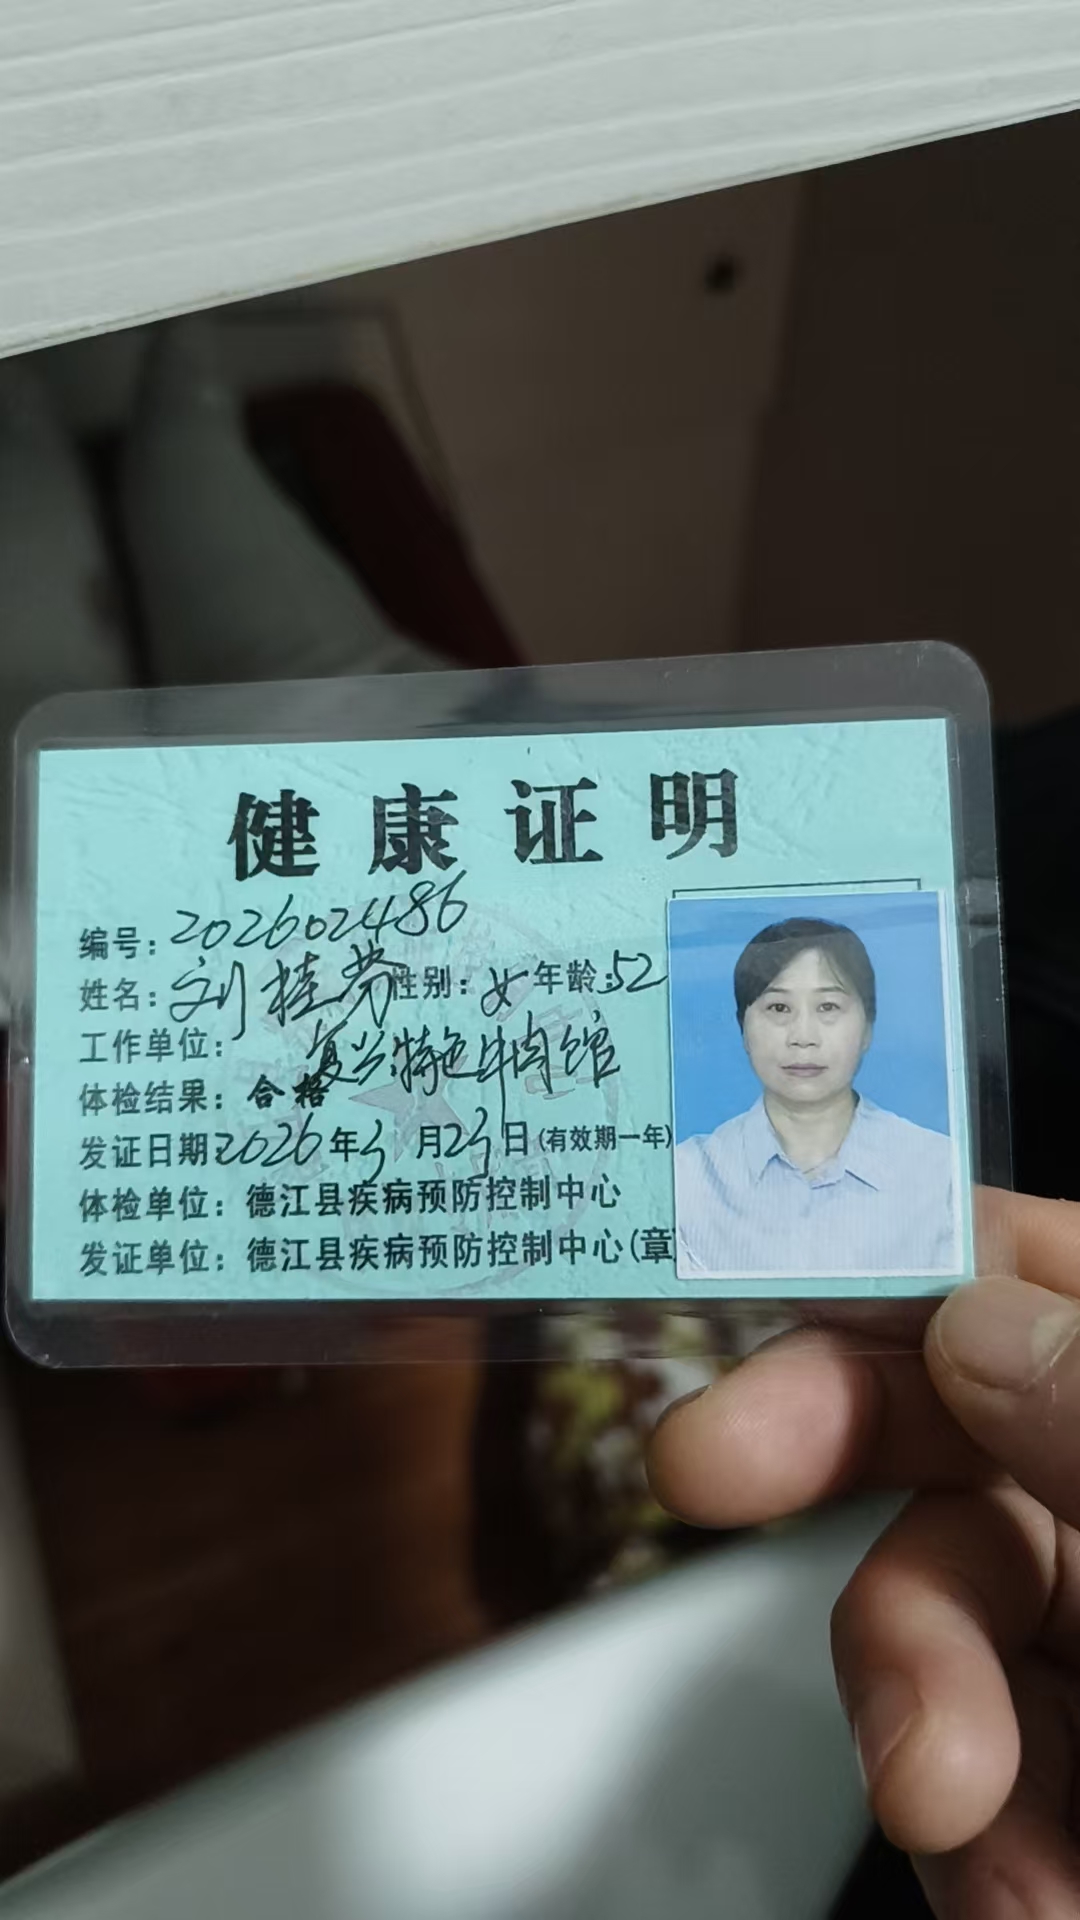 健康证明
编号：202602486
姓名：刘桂芬 性别：女 年龄：52
工作单位：复兴特色牛肉馆
体检结果：合格
发证日期：2026年3月23日(有效期一年)
体检单位：德江县疾病预防控制中心
发证单位：德江县疾病预防控制中心(章)